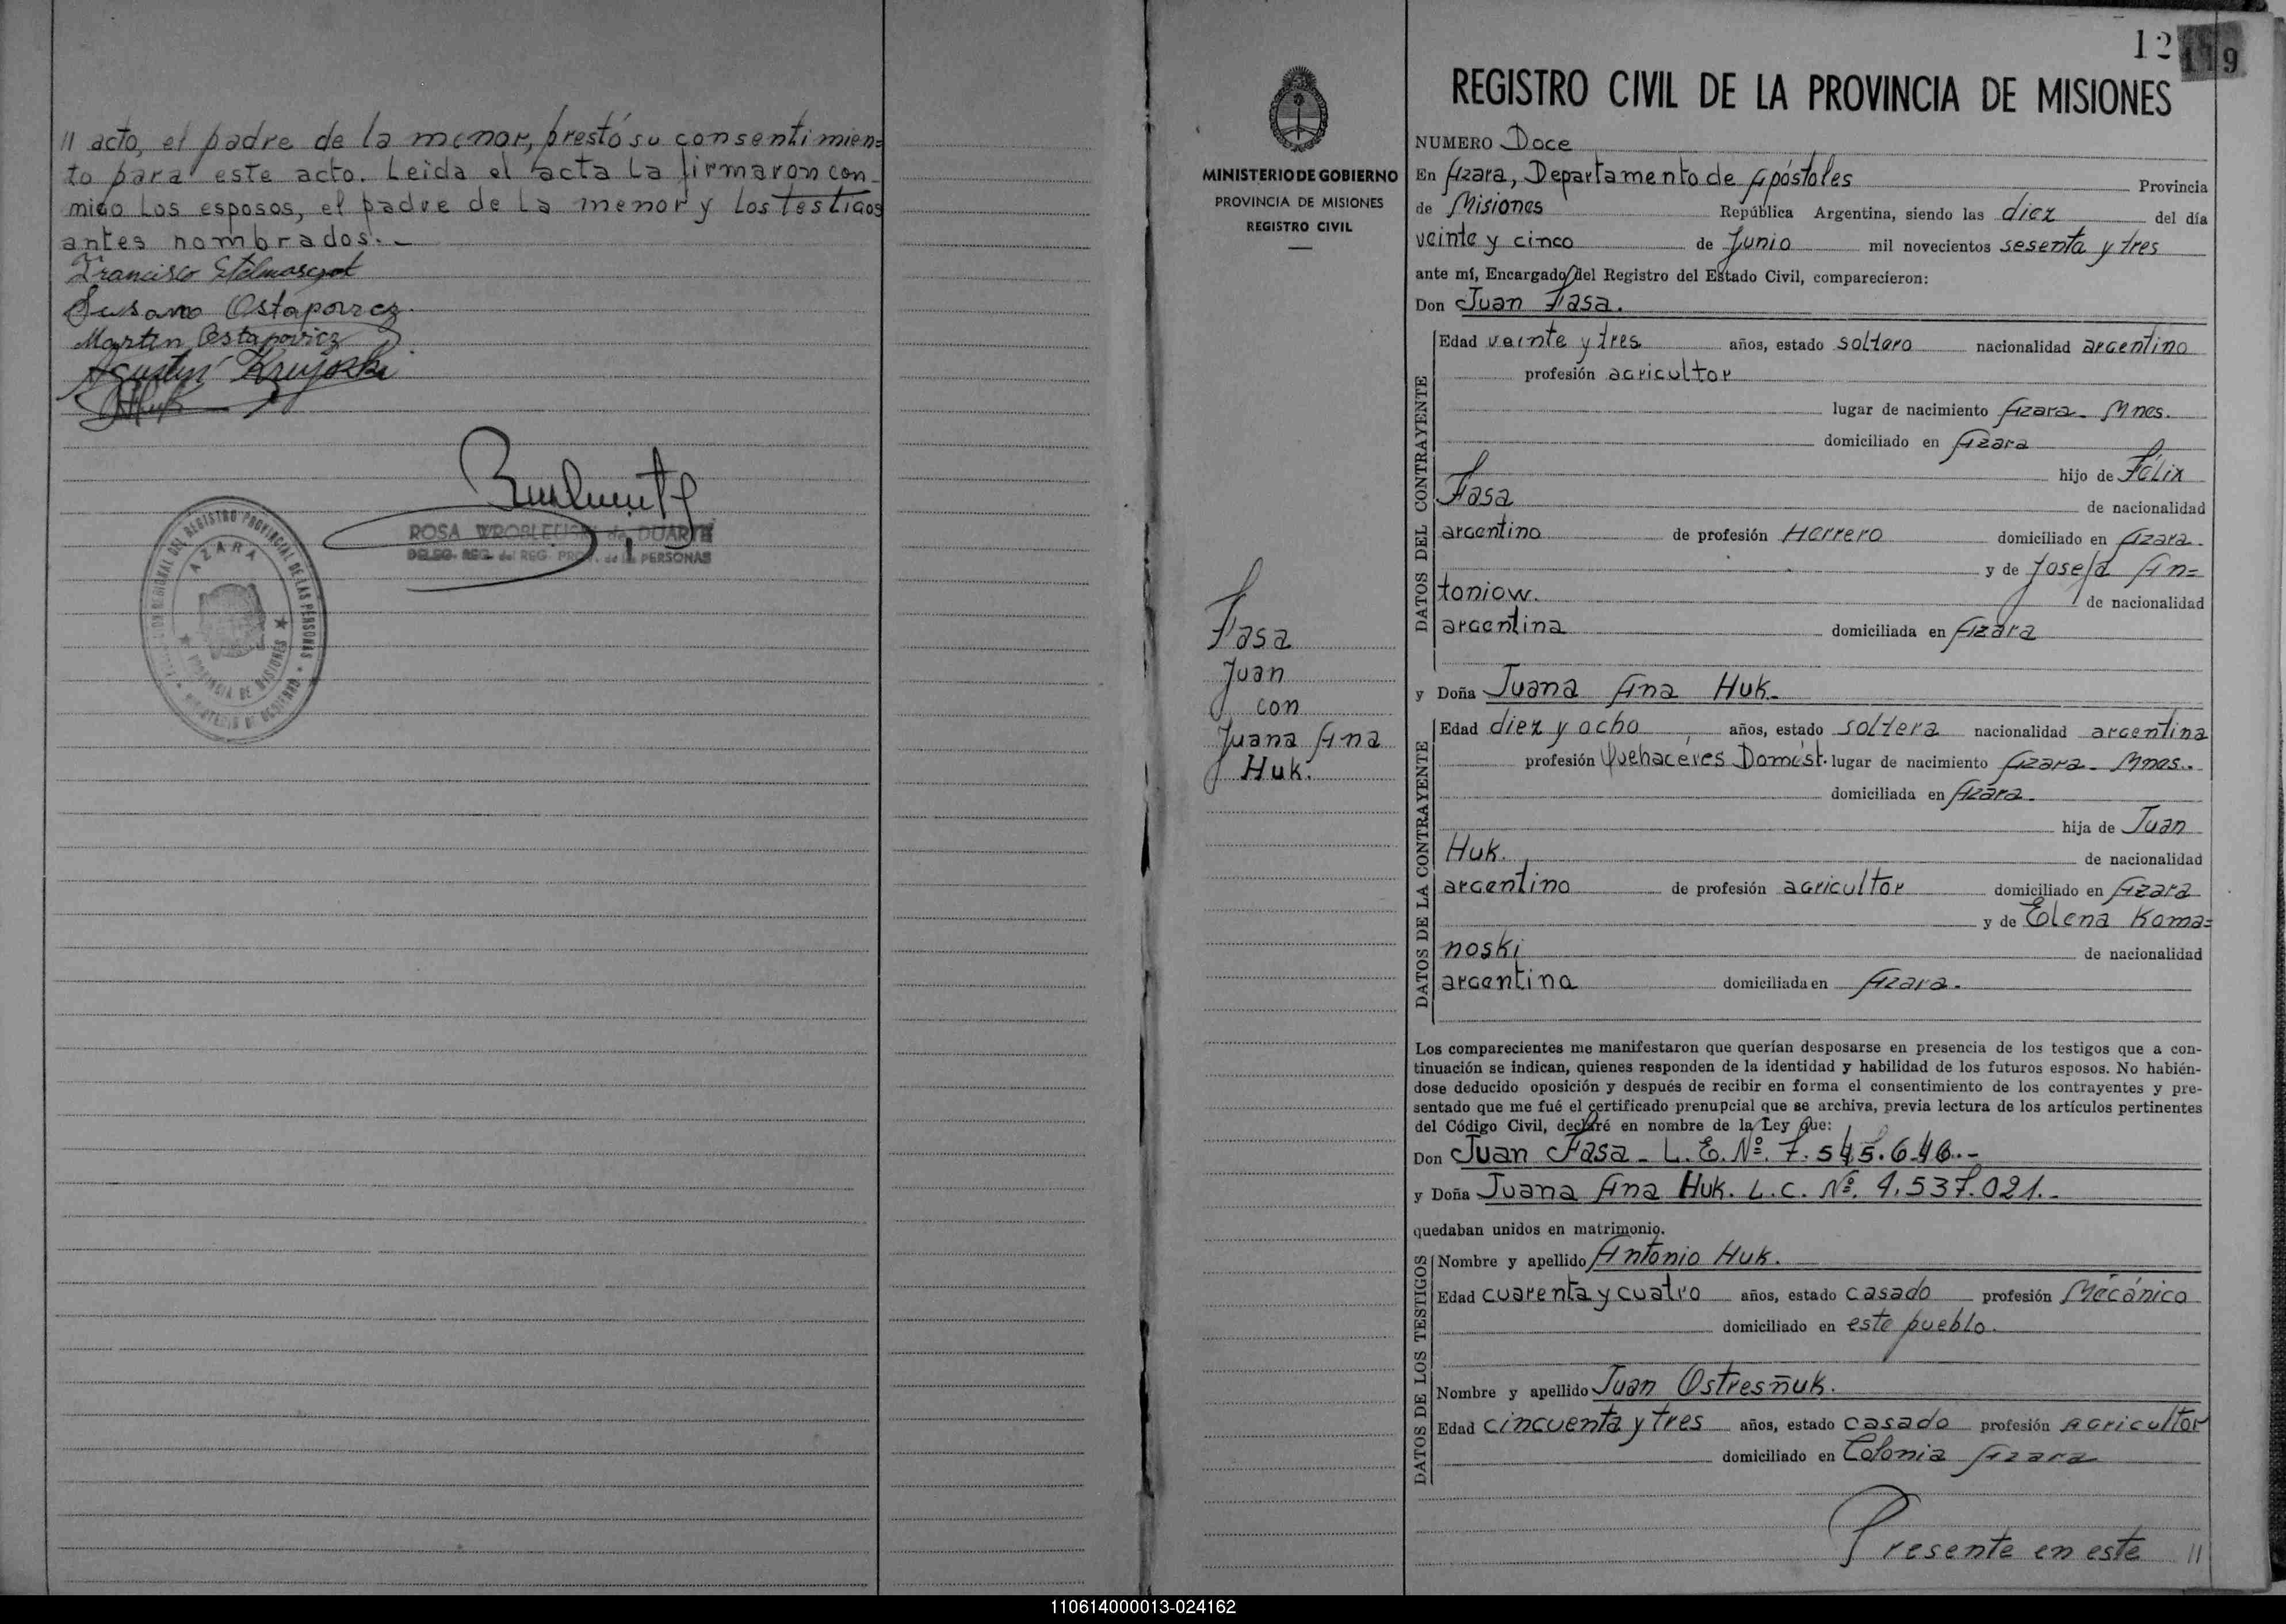 // acto, el padre de la menor, prestó su consentimien=
to para este acto. Leida el acta la firmaron con-
migo los esposos, el padre de la menor y los testigos
antes nombrados.-
Francisco
Susana Ostapovicz
Martin Ostapovicz
Agustin
ROSA WROBLEUSKI de DUARTE
DELEG. REG. del REG. PROV. de las PERSONAS
AZARA
PROVINCIA DE MISIONES
12
9
REGISTRO CIVIL DE LA PROVINCIA DE MISIONES
MINISTERIO DE GOBIERNO
PROVINCIA DE MISIONES
REGISTRO CIVIL
Fasa
Juan
con
Juana Ana
Huk.
NUMERO Doce
En Azara, Departamento de Apóstoles Provincia
de Misiones República Argentina, siendo las diez del día
veinte y cinco de Junio mil novecientos sesenta y tres
ante mí, Encargado del Registro del Estado Civil, comparecieron:
Don Juan Fasa.
DATOS DEL CONTRAYENTE
Edad veinte y tres años, estado soltero nacionalidad argentino
profesión agricultor
lugar de nacimiento Azara - Mnes.
domiciliado en Azara
hijo de Félix
Fasa
de nacionalidad
argentino de profesión Herrero domiciliado en Azara
y de Josefa An=
toniow.
de nacionalidad
argentina domiciliada en Azara
y Doña Juana Ana Huk.
DATOS DE LA CONTRAYENTE
Edad diez y ocho años, estado soltera nacionalidad argentina
profesión Quehaceres Domést. lugar de nacimiento Azara - Mnes.
domiciliada en Azara.
hija de Juan
Huk.
de nacionalidad
argentino de profesión agricultor domiciliado en Azara
y de Elena Koma=
noski
de nacionalidad
argentina domiciliada en Azara.
Los comparecientes me manifestaron que querían desposarse en presencia de los testigos que a con-
tinuación se indican, quienes responden de la identidad y habilidad de los futuros esposos. No habién-
dose deducido oposición y después de recibir en forma el consentimiento de los contrayentes y pre-
sentado que me fué el certificado prenupcial que se archiva, previa lectura de los artículos pertinentes
del Código Civil, declaré en nombre de la Ley que:
Don Juan Fasa - L. E. Nº. 7.545.646.-
y Doña Juana Ana Huk. L.C. Nº. 4.537.021.-
quedaban unidos en matrimonio.
DATOS DE LOS TESTIGOS
Nombre y apellido Antonio Huk.
Edad cuarenta y cuatro años, estado casado profesión Mecánico
domiciliado en este pueblo.
Nombre y apellido Juan Ostresñuk.
Edad cincuenta y tres años, estado casado profesión agricultor
domiciliado en Colonia Azara
Presente en este //
110614000013-024162